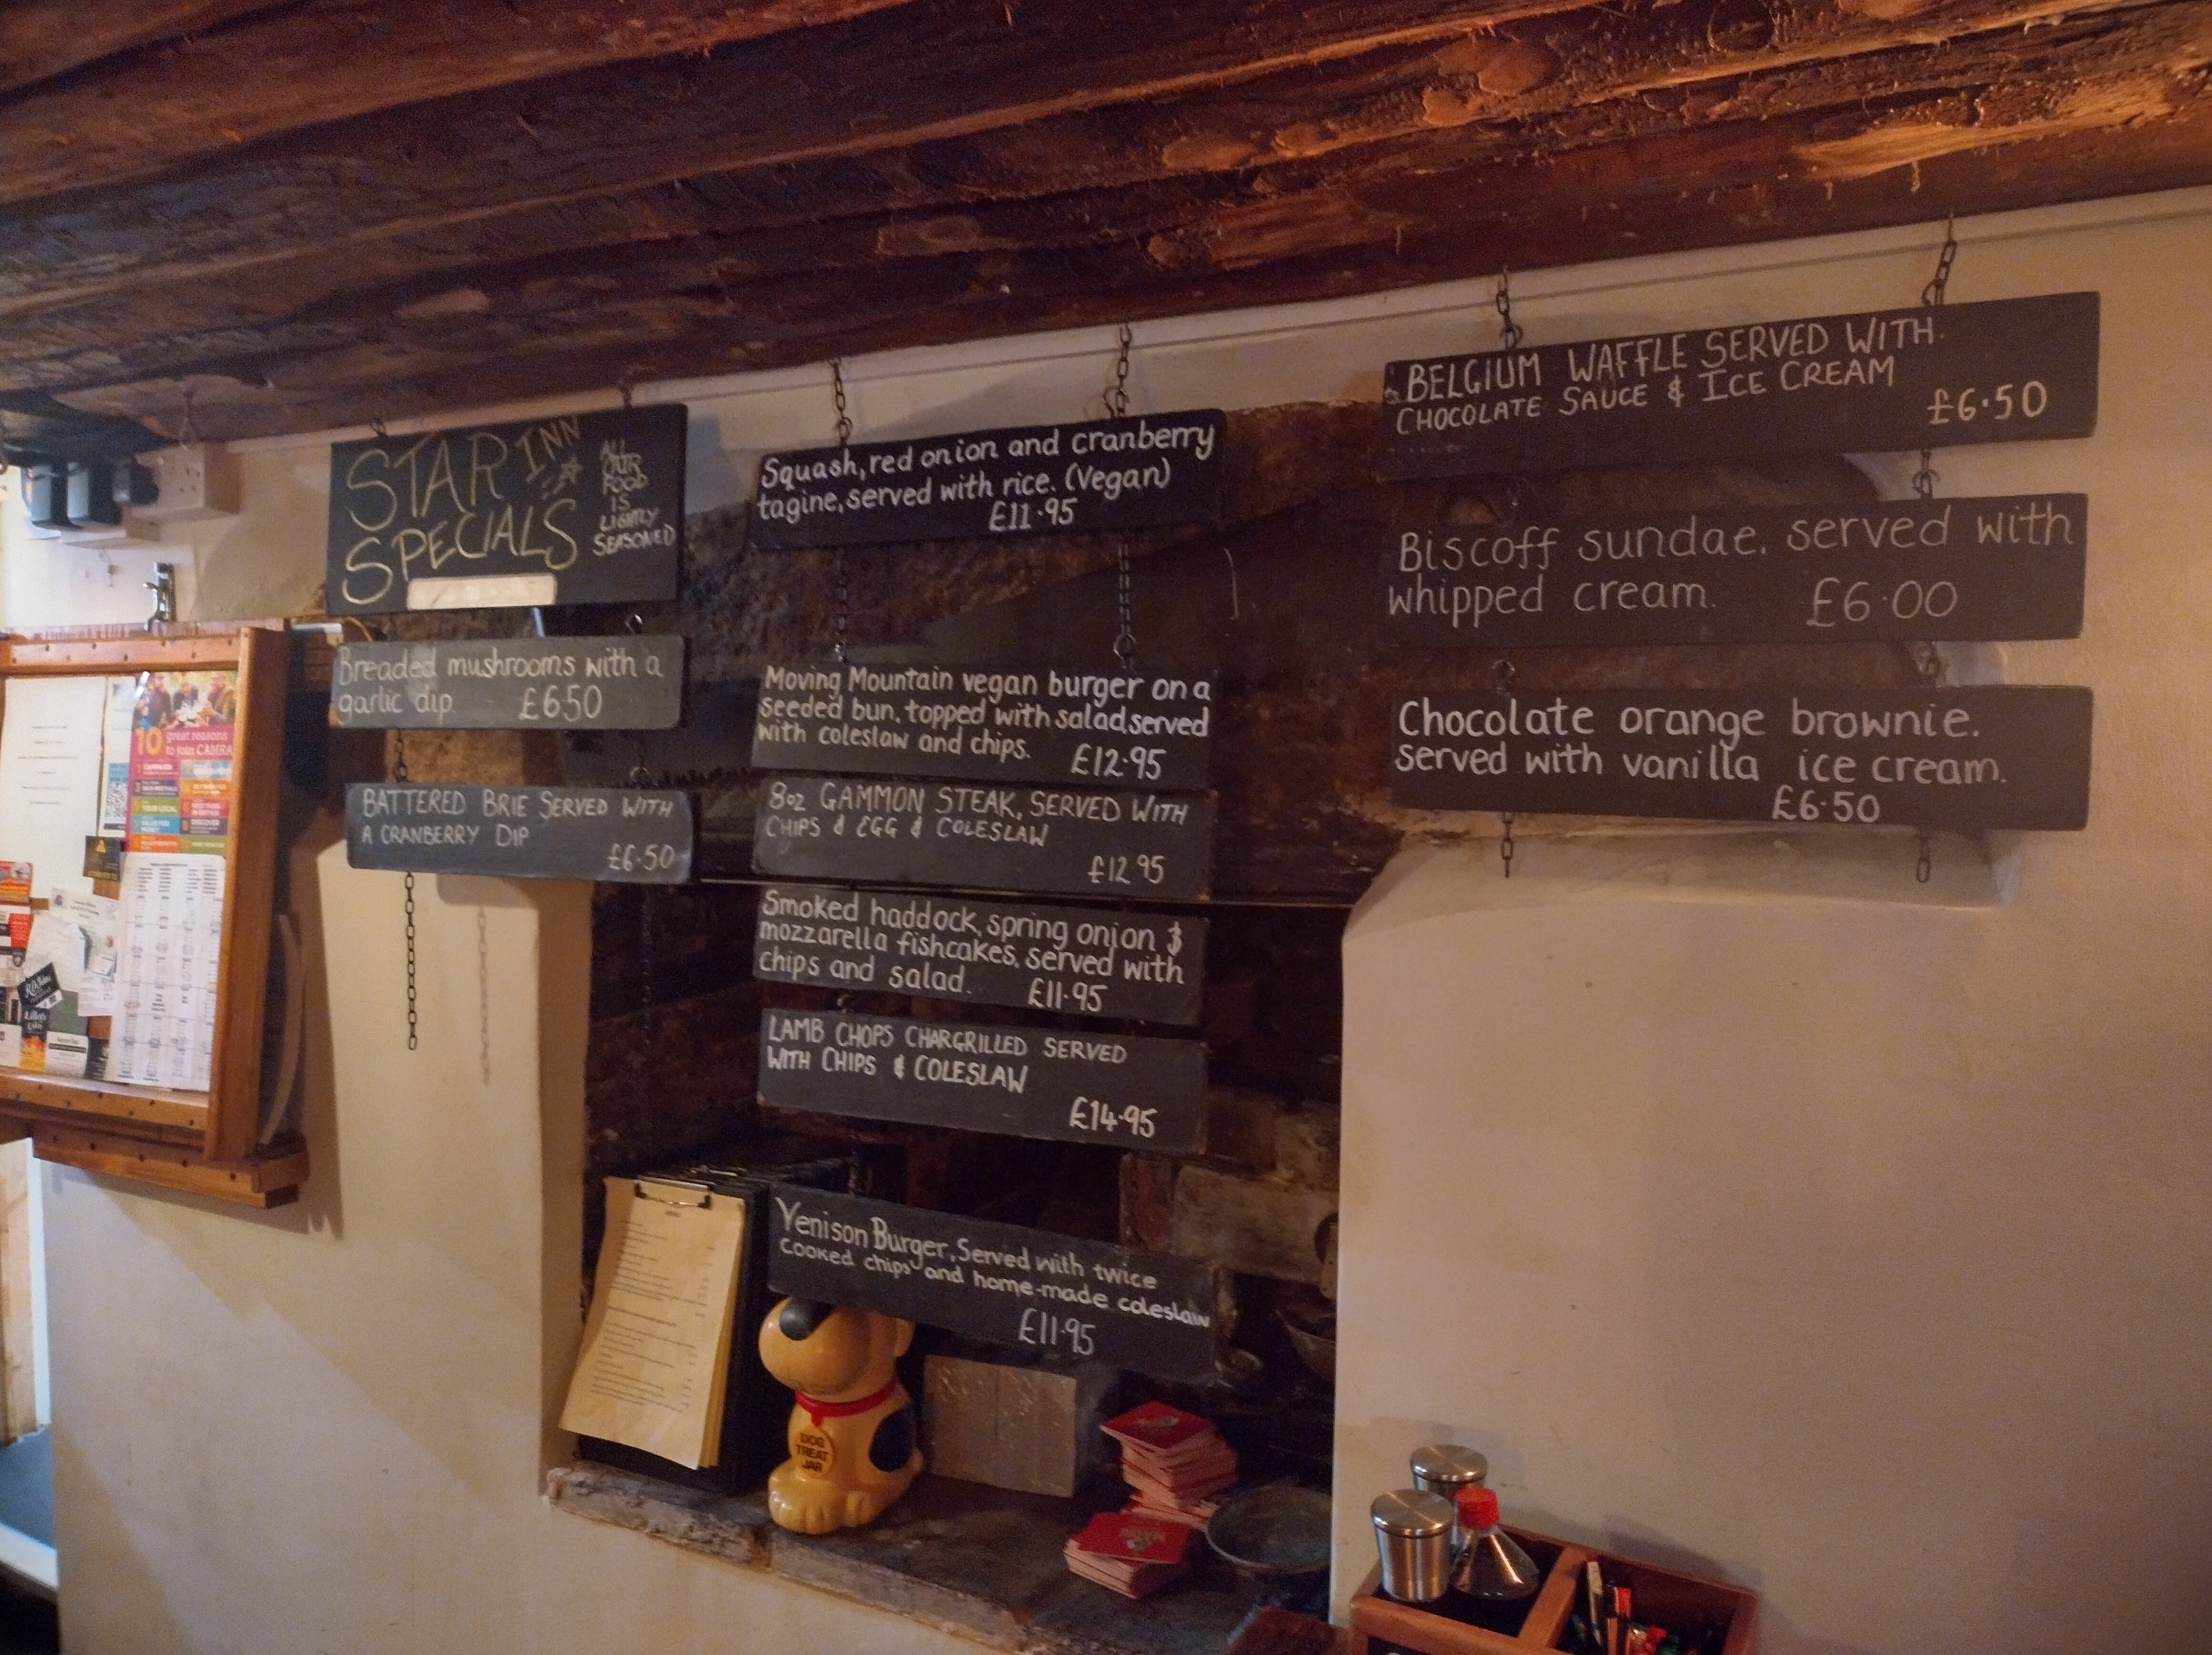 STAR INN
SPECIALS
ALL
OUR
FOOD
IS
LIGHTLY
SEASONED
Breaded mushrooms with a
garlic dip £6.50
BATTERED BRIE SERVED WITH
A CRANBERRY DIP
£6.50
Squash, red onion and cranberry
tagine, served with rice. (Vegan)
£11.95
Moving Mountain vegan burger on a
seeded bun, topped with salad, served
with coleslaw and chips. £12.95
8oz GAMMON STEAK, SERVED WITH
CHIPS & EGG & COLESLAW
£12.95
Smoked haddock, spring onion &
mozzarella fishcakes, served with
chips and salad. £11.95
LAMB CHOPS CHARGRILLED SERVED
WITH CHIPS & COLESLAW
£14.95
Venison Burger, Served with twice
Cooked chips and home-made coleslaw
£11.95
BELGIUM WAFFLE SERVED WITH
CHOCOLATE SAUCE & ICE CREAM
£6.50
Biscoff sundae. served with
whipped cream. £6.00
Chocolate orange brownie.
served with vanilla ice cream.
£6.50
10 great reasons
to join CAMRA
DOG
TREAT
JAR